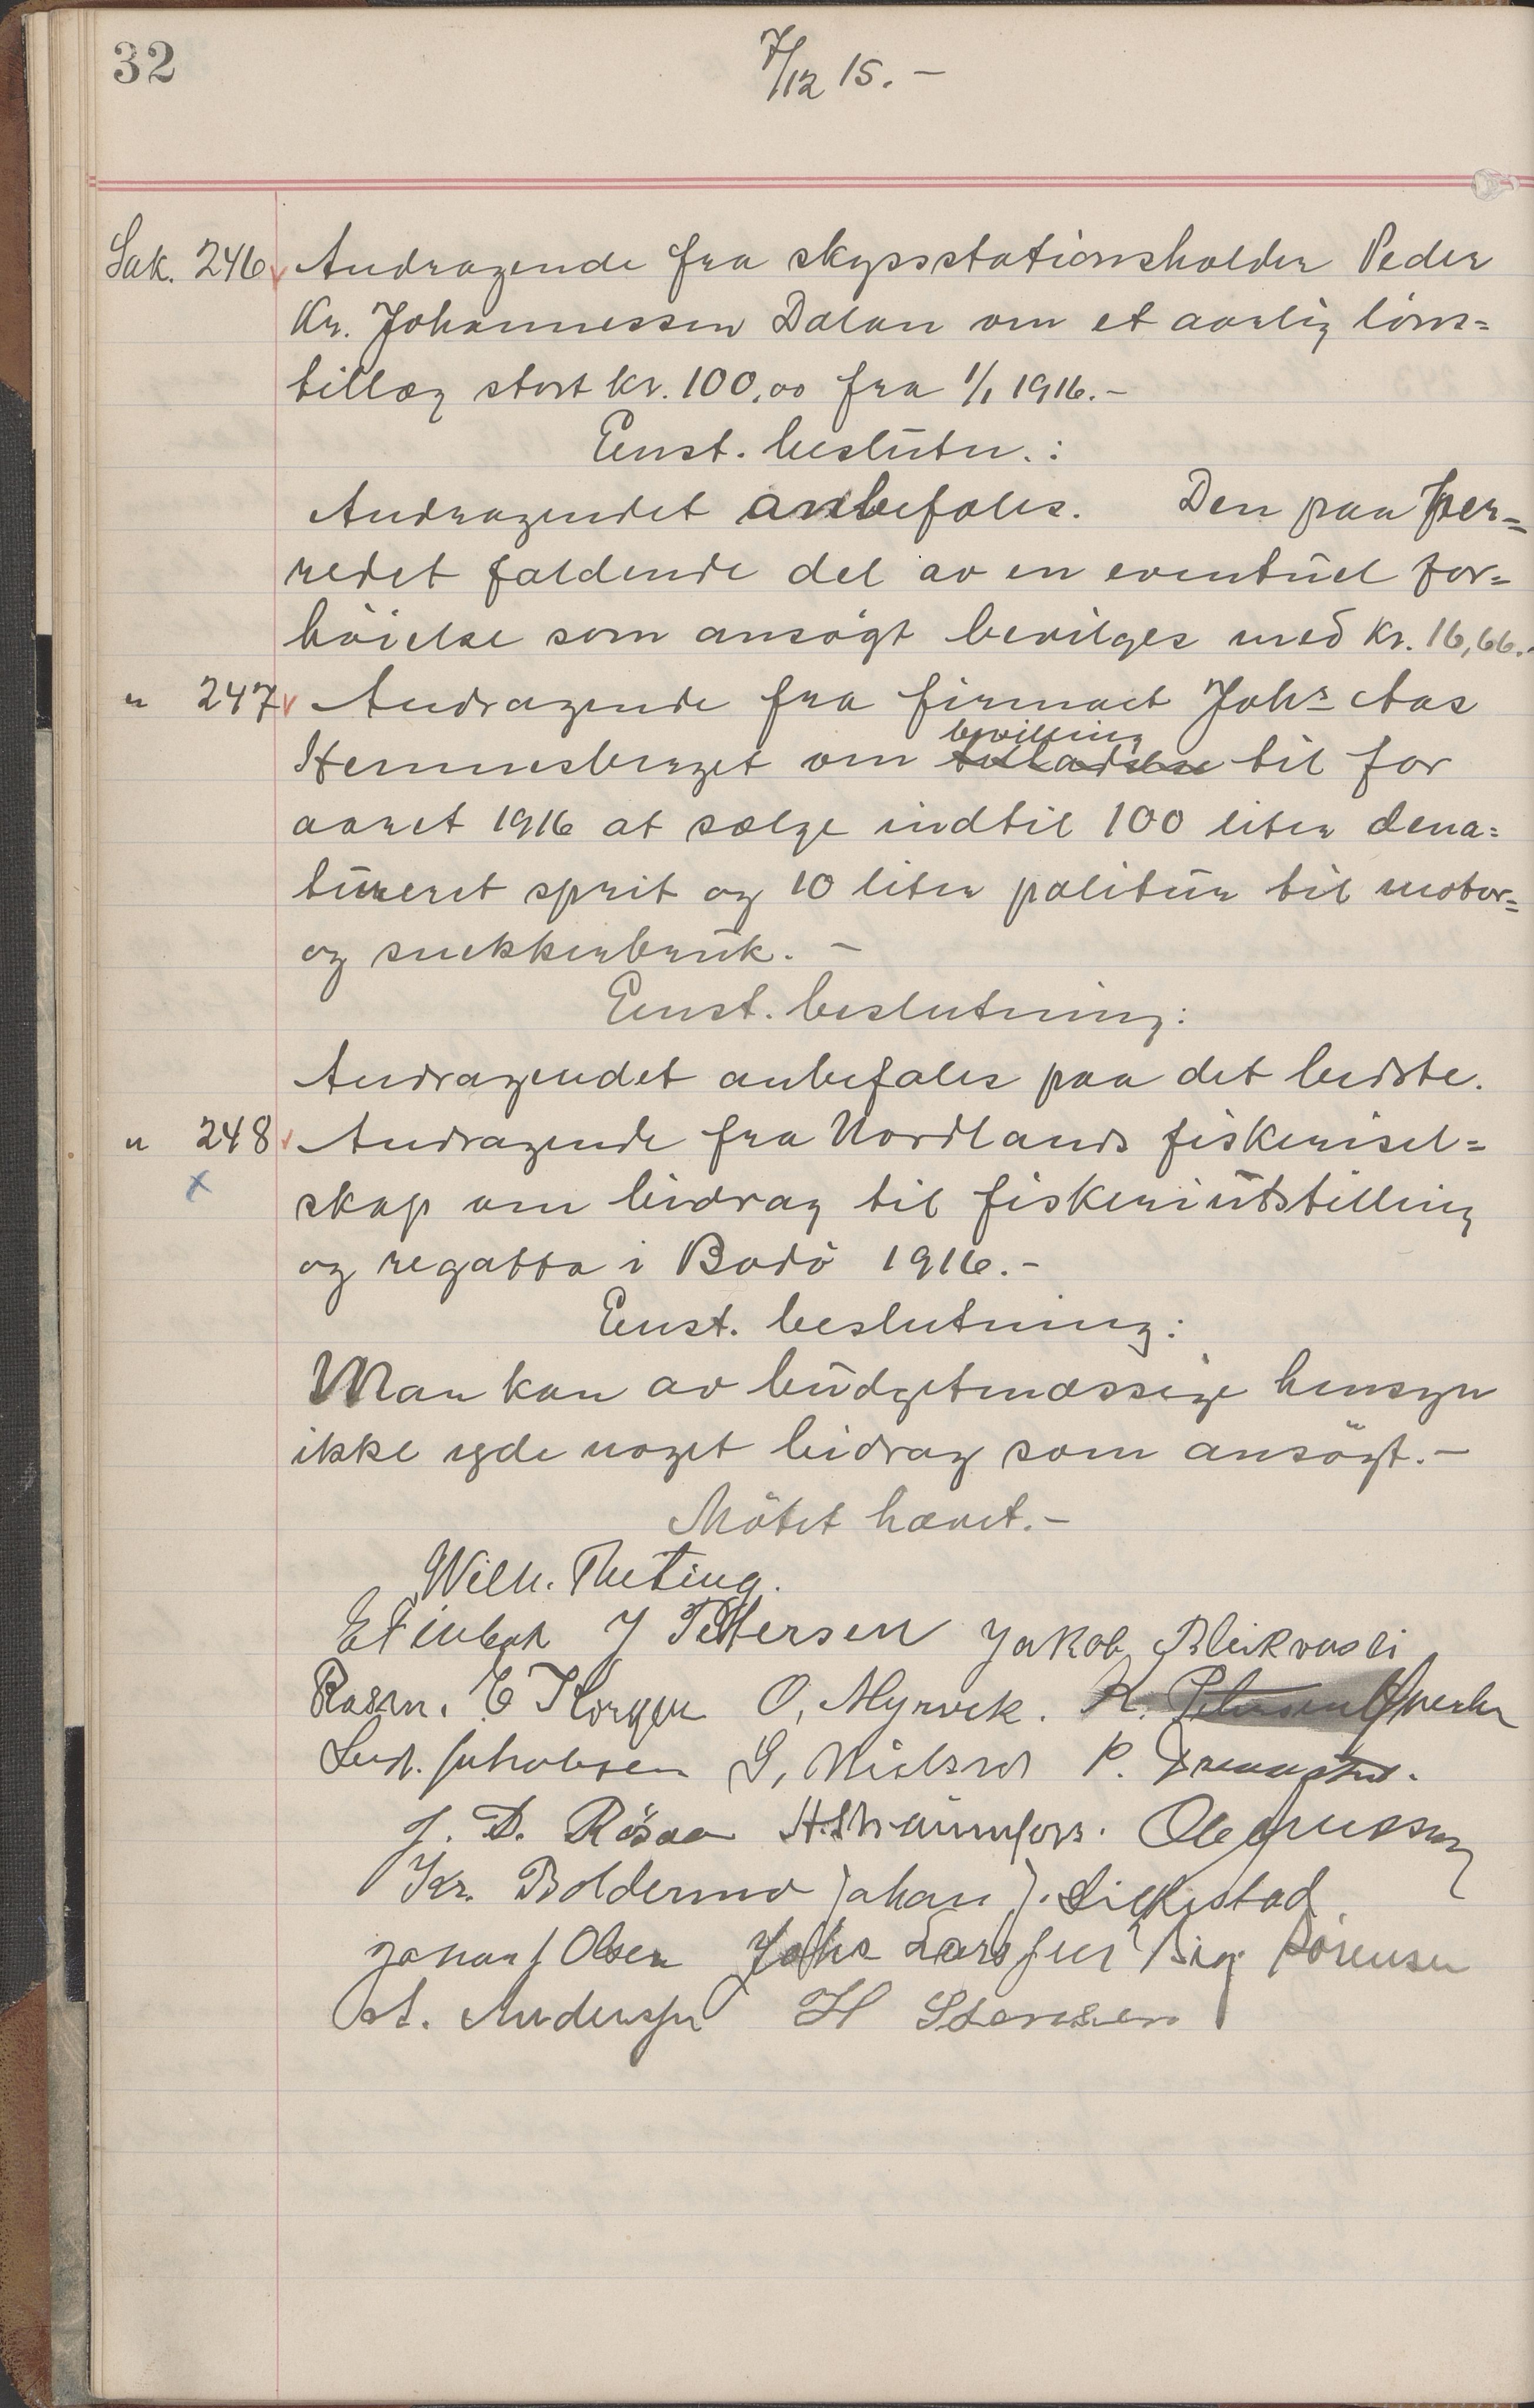 32
7/12 15. –
Sak. 246 Andragende fra skysstationsholder Peder
Kr. Johannessen Dalan om et aarlig löns=
tillæg stort kr. 100,00 fra 1/1 1916. –
Enst. beslutn. :
Andragendet anbefales. Den paa her=
redet faldende del av en eventuel for=
höielse som ansögt bevilges med kr. 16,66. –
" 247 Andragende fra firmaet Johs Aas
bevilling
Hemnesberget om tilladelse til for
aaret 1916 at sælge indtil 100 liter dena=
tureret sprit og 10 liter politur til motor=
og snekkerbruk. –
Enst. beslutning:
Andragendet anbefales paa det bedste.
" 248 Andragende fra Nordlands fiskerisel=
x
skap om bidrag til fiskeriutstilling
og regatta i Bodö 1916. –
Enst. beslutning:
Man kan av budgetmæssige hensyn
ikke yde noget bidrag som ansögt. –
Mötet hævet. –
Wilh. Theting.
E Finbak J Pettersen Jakob Bleikvasli
Rasm. E Korgen O, Myrvik. K. Petersen
Lud. Jakobsen S, Nielsen P.
J. D. Rösaa Ole
Kr. Boldermo Johan J. Silkestad
Johan J Olsen Johs Larssen Sig. Sörensen
A. Anderssen H Stensen